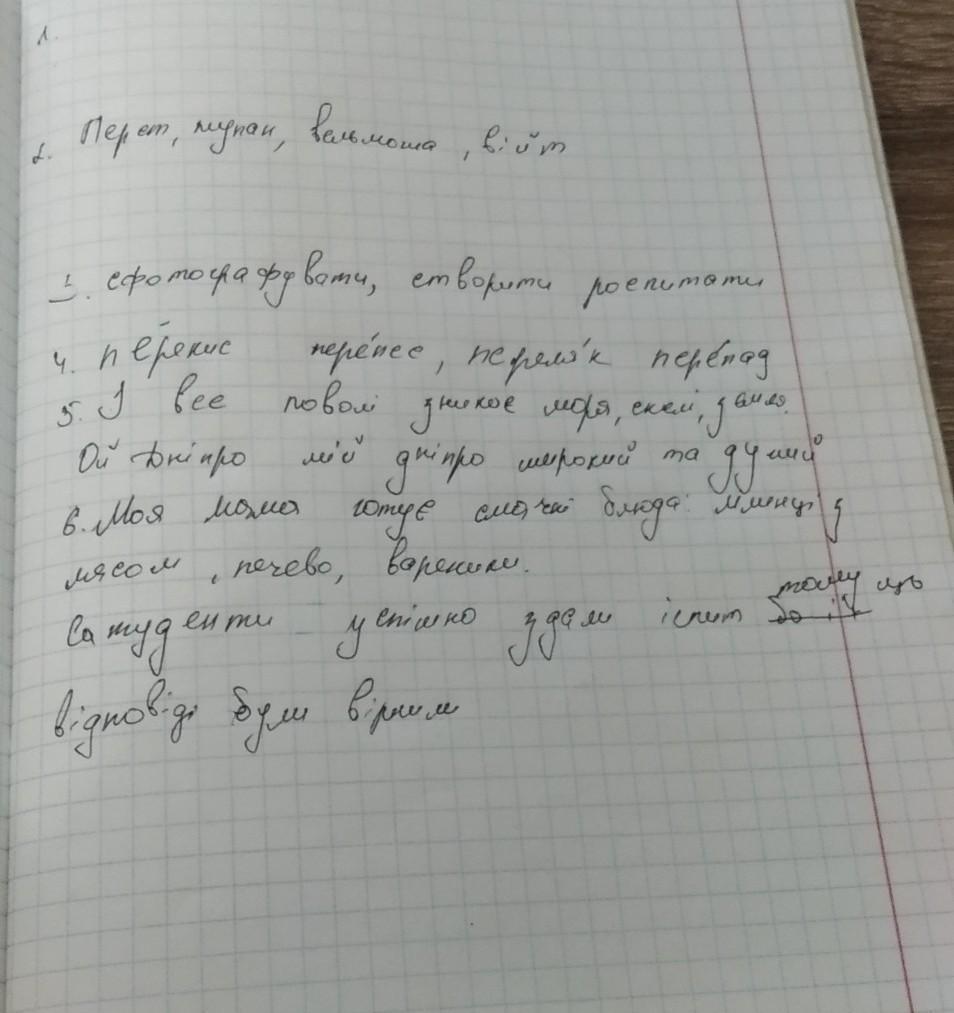 1.
2. Перст, жупан, вельможа, війт
3. сфотографувати, створити розпитати
4. перепис перепес, переляк перепад
5. І все поволі зникає моря, скелі, земля.
Ой Дніпро мій дніпро широкий та дужий
6. Моя мама готує смачні блюда: млинці з
мясом, печево, вареники.
Сатуденти успішно здали іспит бо їх тому що
відповіді були вірними